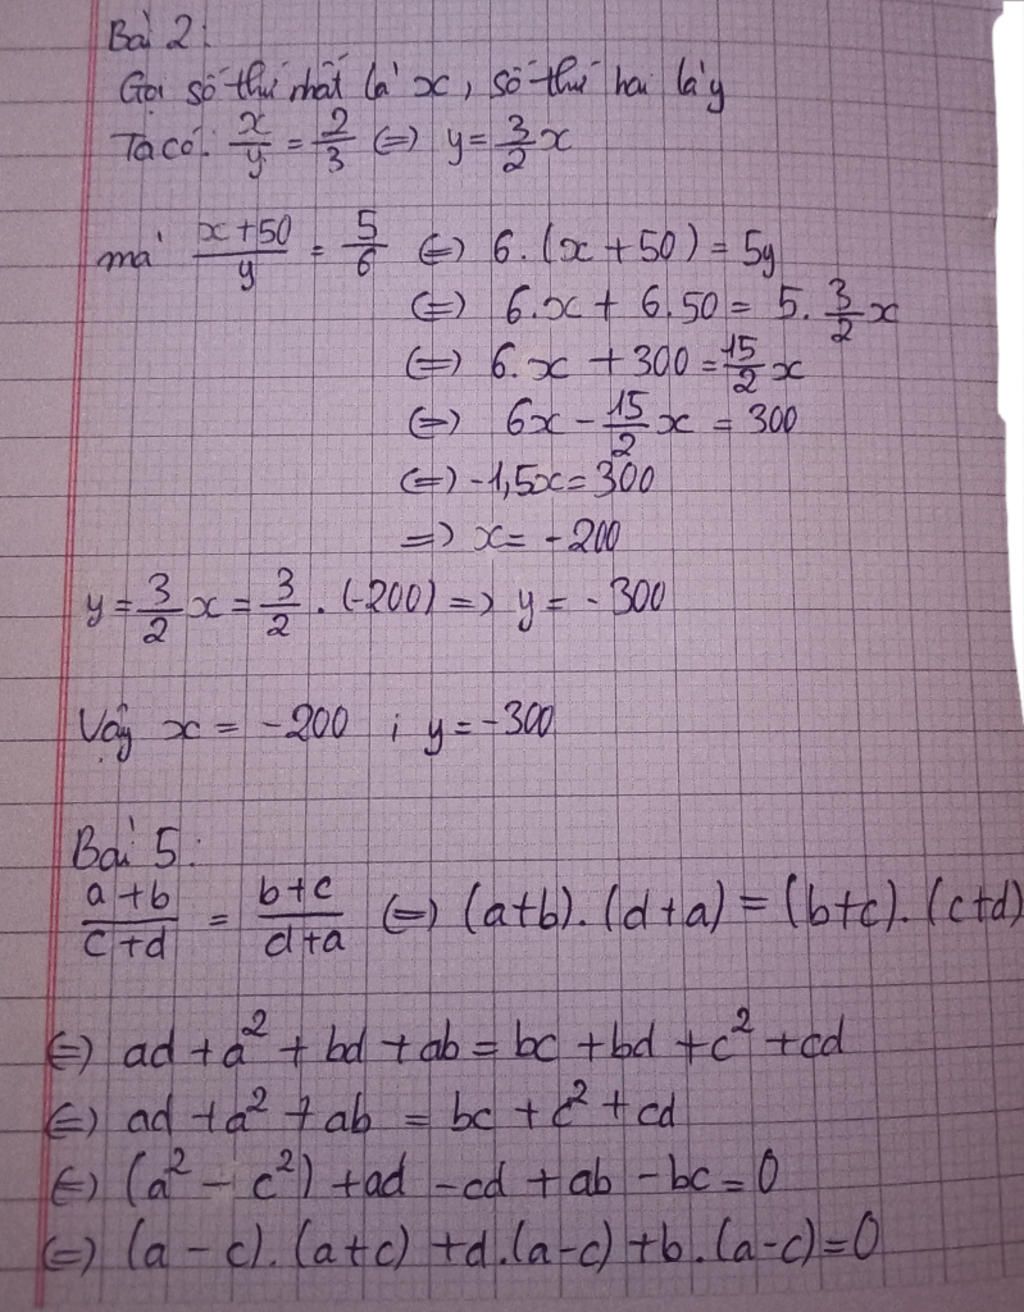 Bài 2:
Gọi số thứ nhất là x, số thứ hai là y
Ta có: x/y = 2/3 (=) y = 3/2 x
mà (x+50)/y = 5/6 (=) 6.(x+50) = 5y
(=) 6.x + 6.50 = 5. 3/2 x
(=) 6.x + 300 = 15/2 x
(=) 6x - 15/2 x = 300
(=) -1,5x = 300
=) x = -200
y = 3/2 x = 3/2 . (-200) =) y = -300
Vậy x = -200 ; y = -300
Bài 5:
(a+b)/(c+d) = (b+c)/(d+a) (=) (a+b).(d+a) = (b+c).(c+d)
(=) ad + a² + bd + ab = bc + bd + c² + cd
(=) ad + a² + ab = bc + c² + cd
(=) (a² - c²) + ad - cd + ab - bc = 0
(=) (a - c).(a+c) + d.(a-c) + b.(a-c) = 0